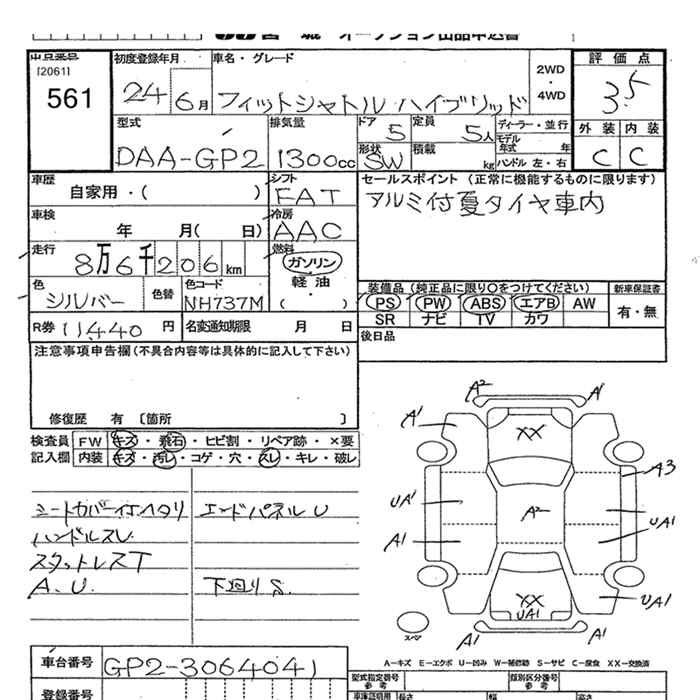 宮 城 オークション出品申込書
出品番号
[2061]
561
初度登録年月
24 6月
車名・グレード
フィットシャトル ハイブリッド
2WD
・
4WD
評価点
3.5
外装 内装
C C
型式
DAA-GP2
排気量
1300cc
ドア 5
定員 5人
形状 SW
積載 kg
ディーラー・並行
モデル年式 年
ハンドル 左・右
車歴
自家用・( )
シフト
FAT
車検
年 月( 日)
冷房
AAC
走行
8万6千206km
燃料
ガソリン
軽油
・( )
色
シルバー
色替
色コード
NH737M
R券 11,440 円
名変通知期限 月 日
セールスポイント (正常に機能するものに限ります)
アルミ付夏タイヤ車内
装備品(純正品に限り○をつけてください)
PS PW ABS エアB AW
SR ナビ TV カワ
新車保証書
有・無
後日品
注意事項申告欄(不具合内容等は具体的に記入して下さい)
修復歴 有〔箇所 〕
検査員記入欄
FW キズ・飛石・ヒビ割・リペア跡・×要
内装 キズ・汚レ・コゲ・穴・スレ・キレ・破レ
シートカバー付ヘタリ
ハンドルスレ
スタットレスT
A.U.
エンドパネルU
下廻りS.
A2 A1
A1
XX
A3
UA1
A2
UA1
A1
XX
UA1
UA1
スペア
A1 A1
A－キズ E－エクボ U－凹み W－補修跡 S－サビ C－腐食 XX－交換済
車台番号
GP2-3064041
登録番号
型式指定番号
参考
類別区分番号
参考
車庫証明用 長さ 幅 高さ